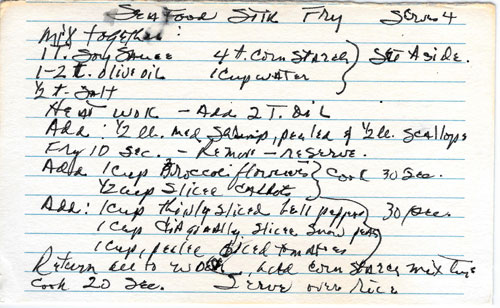 Seafood Stir Fry Serves 4
Mix together:
1 T. Soy Sauce 4 t. Corn Starch } Set Aside.
1-2 t. olive oil 1 cup water
1/2 t. Salt
Heat wok - Add 2 T. Oil
Add: 1/2 lb. med Shrimp, peeled & 1/2 lb. scallops
Fry 10 Sec. - Remove - reserve.
Add 1 cup Broccoli flowers } Cook 30 Sec.
1/2 cup Sliced Carrots
Add: 1 cup thinly sliced bell pepper } 30 Sec.
1 cup diagonally slices snow peas
1 cup, peeled, diced tomatoes
Return all to wok, Add corn starch mixture
Cook 20 Sec. Serve over Rice